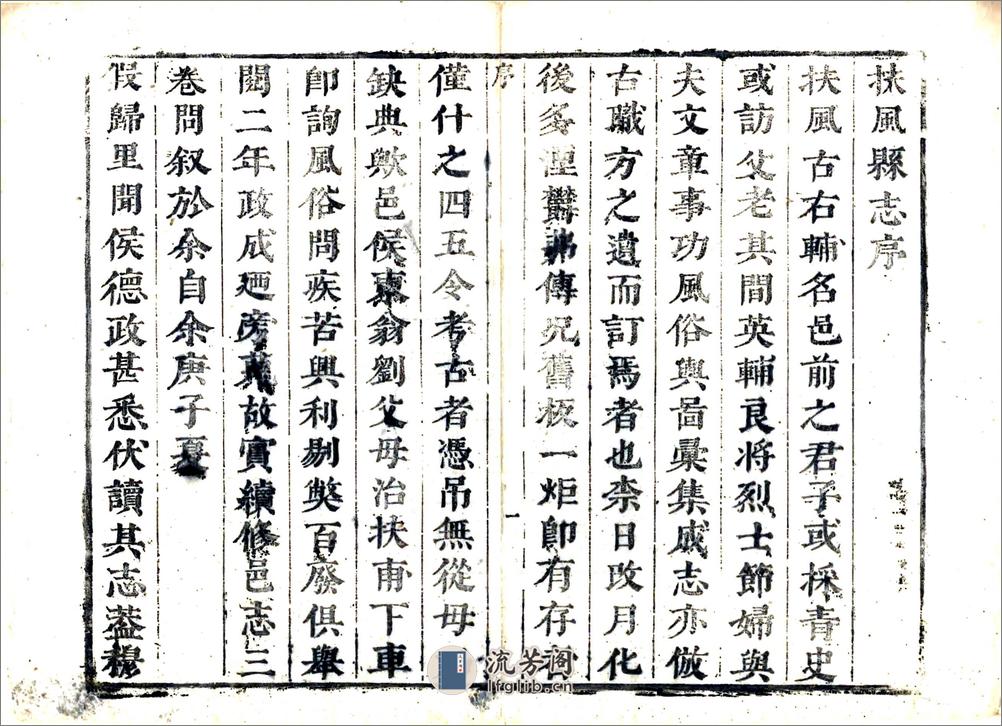 扶風縣志序
扶風古右輔名邑前之君子或採青史
或訪父老其間英輔良将烈士節婦與
夫文章事功風俗與啚彚集成志亦倣
古職方之遺而訂焉者也柰日改月化
後多湮欝弗傳况舊板一炬即有存
序
一
僅什之四五令考古者憑吊無從毋
缺典歟邑侯翁劉父母治扶甫下車
即詢風俗問疾苦興利剔獘百廢俱舉
閱二年政成廼旁蒐故實續修邑志三
卷問叙於余自余庚子夏
假歸里聞侯德政甚悉伏讀其志葢穆
流芳阁
lfglib.cn